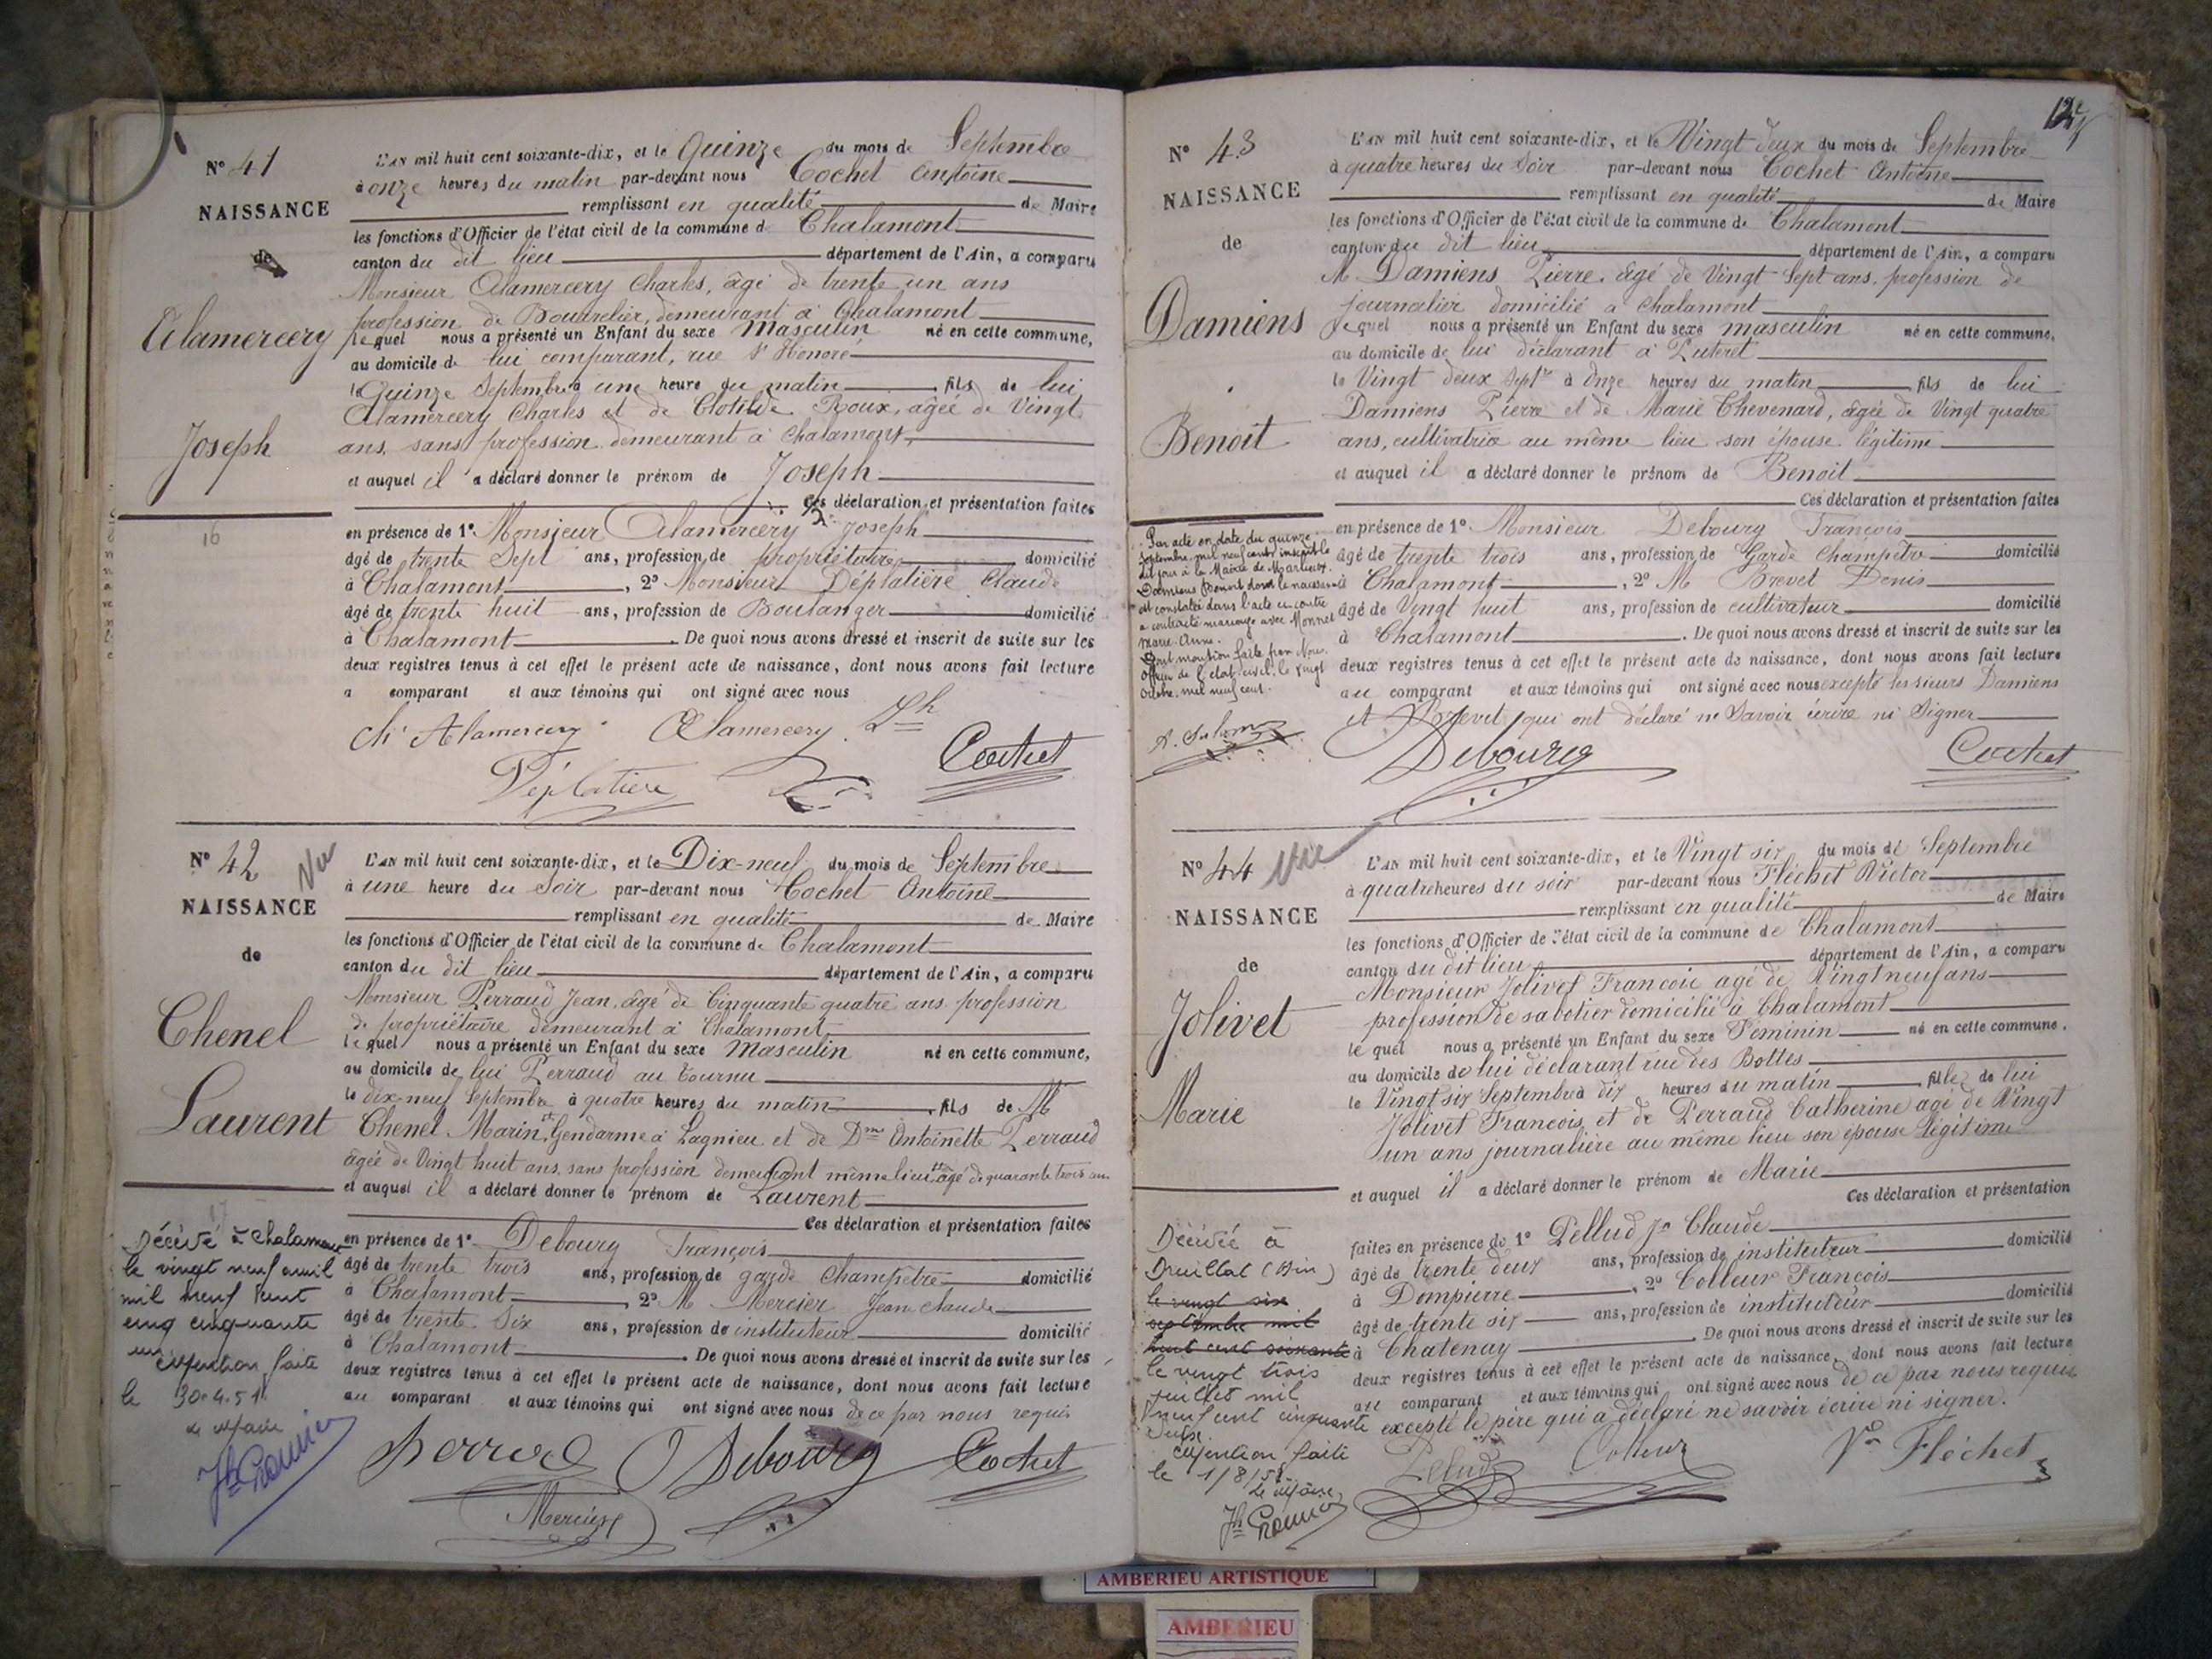 Nº 41
NAISSANCE
de
Alamercery
Joseph
16
L'AN mil huit cent soixante-dix, et le Quinze du mois de Septembre
à onze heures du matin par-devant nous Cochet Antoine
remplissant en qualité de Maire
les fonctions d'Officier de l'état civil de la commune de Chalamont
canton du dit lieu département de l'Ain, a comparu
Monsieur Alamercery Charles, âgé de trente un ans
profession de Bourrelier, demeurant à Chalamont
lequel nous a présenté un Enfant du sexe Masculin né en cette commune,
au domicile de lui comparant, rue St Honoré
le Quinze Septembre à une heure du matin fils de lui
Alamercery Charles et de Clotilde Roux, âgée de Vingt
ans, sans profession demeurant à Chalamont,
et auquel il a déclaré donner le prénom de Joseph
Ces déclaration et présentation faites
en présence de 1º Monsieur Alamercery Joseph
âgé de trente Sept ans, profession de propriétaire domicilié
à Chalamont, 2º Monsieur Déplatière Claude
âgé de trente huit ans, profession de Boulanger domicilié
à Chalamont. De quoi nous avons dressé et inscrit de suite sur les
deux registres tenus à cet effet le présent acte de naissance, dont nous avons fait lecture
a comparant et aux témoins qui ont signé avec nous
Ch Alamercery Alamercery Jh
Déplatière Cochet
Nº 42 Vu
NAISSANCE
de
Chenel
Laurent
L'AN mil huit cent soixante-dix, et le Dix-neuf du mois de Septembre
à une heure du Soir par-devant nous Cochet Antoine
remplissant en qualité de Maire
les fonctions d'Officier de l'état civil de la commune de Chalamont
canton du dit lieu département de l'Ain, a comparu
Monsieur Perraud Jean, âgé de Cinquante quatre ans, profession
de propriétaire demeurant à Chalamont
lequel nous a présenté un Enfant du sexe Masculin né en cette commune,
au domicile de lui Perraud au Tournu
le dix-neuf Septembre à quatre heures du matin fils de M
Chenel Marin, Gendarme à Lagnieu et de Dme Antoinette Perraud
âgée de Vingt huit ans, sans profession demeurant même lieu âgé de quarante trois ans
et auquel il a déclaré donner le prénom de Laurent
Ces déclaration et présentation faites
en présence de 1º Debourg François
âgé de trente trois ans, profession de garde Champêtre domicilié
à Chalamont, 2º M Mercier Jean Claude
âgé de trente Six ans, profession de instituteur domicilié
à Chalamont. De quoi nous avons dressé et inscrit de suite sur les
deux registres tenus à cet effet le présent acte de naissance, dont nous avons fait lecture
au comparant et aux témoins qui ont signé avec nous de ce par nous requis
Décédé à Chalamont
le vingt neuf avril
mil neuf cent
cinq cinquante
un
Mention faite
le 30.4.51
Le Maire
Debourg Cochet
Mercier
12
Nº 43
NAISSANCE
de
Damiens
Benoit
L'AN mil huit cent soixante-dix, et le Vingt deux du mois de Septembre
à quatre heures du Soir par-devant nous Cochet Antoine
remplissant en qualité de Maire
les fonctions d'Officier de l'état civil de la commune de Chalamont
canton du dit lieu département de l'Ain, a comparu
M Damiens Pierre, âgé de Vingt Sept ans, profession de
journalier domicilié à Chalamont
lequel nous a présenté un Enfant du sexe masculin né en cette commune,
au domicile de lui déclarant à Puteret
le Vingt deux Septbre à Onze heures du matin fils de lui
Damiens Pierre et de Marie Chevenard, âgée de Vingt quatre
ans, cultivatrice au même lieu son épouse légitime
et auquel il a déclaré donner le prénom de Benoit
Ces déclaration et présentation faites
en présence de 1º Monsieur Debourg François
âgé de trente trois ans, profession de Garde Champêtre domicilié
à Chalamont, 2º M Brevet Denis
âgé de Vingt huit ans, profession de cultivateur domicilié
à Chalamont. De quoi nous avons dressé et inscrit de suite sur les
deux registres tenus à cet effet le présent acte de naissance, dont nous avons fait lecture
au comparant et aux témoins qui ont signé avec nous excepté les sieurs Damiens
et Brevet qui ont déclaré ne Savoir écrire ni Signer
Par acte en date du quinze
Septembre mil neuf cent, inscrit le
dit jour à la Mairie de Marlieux,
Damiens Benoit dont la naissance
est constatée dans l'acte ci contre
a contracté mariage avec Monnet
Marie Anne.
Dont mention faite par Nous
Officier de l'état civil, le vingt
Octobre mil neuf cent.
Debourg Cochet
Nº 44 Vu
NAISSANCE
de
Jolivet
Marie
L'AN mil huit cent soixante-dix, et le Vingt six du mois de Septembre
à quatre heures du soir par-devant nous Fléchet Victor
remplissant en qualité de Maire
les fonctions d'Officier de l'état civil de la commune de Chalamont
canton du dit lieu département de l'Ain, a comparu
Monsieur Jolivet Francois agé de Vingt neuf ans
profession de sabotier domicilié à Chalamont
le quel nous a présenté un Enfant du sexe Féminin né en cette commune,
au domicile de lui déclarant rue des Bottes
le Vingt six Septembre à dix heures du matin fille de lui
Jolivet Francois et de Perraud Catherine agé de Vingt
un ans journalière au même lieu son épouse légitime
et auquel il a déclaré donner le prénom de Marie
Ces déclaration et présentation
faites en présence de 1º Pellud Jn Claude domicilié
âgé de trente deux ans, profession de instituteur
à Dompierre, 2º Colleur François
âgé de trente six ans, profession de instituteur domicilié
à Chatenay. De quoi nous avons dressé et inscrit de suite sur les
deux registres tenus à cet effet le présent acte de naissance, dont nous avons fait lecture
au comparant et aux témoins qui ont signé avec nous de ce par nous requis
excepté le père qui a déclaré ne savoir écrire ni signer.
Décédée à
Druillat (Ain)
le vingt six
septembre mil
huit cent soixante
le vingt trois
juillet mil
neuf cent cinquante
Mention faite
le 1/8/52
Le Maire
Pellud Colleur Vor Fléchet
AMBERIEU ARTISTIQUE
AMBERIEU